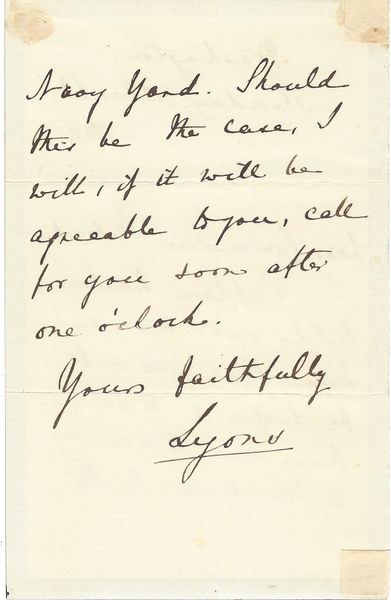 Navy Yard. Should
this be the case, I
will, if it will be
agreeable to you, call
for you soon after
one o'clock.
Yours faithfully
Lyons